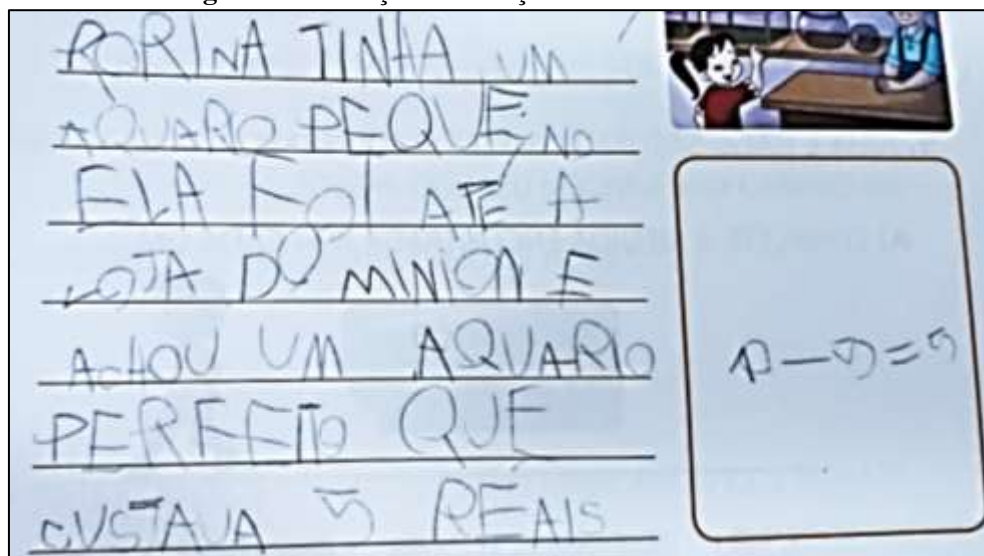 RORINA TINHA UM
AQUARIO PEQUENO
ELA FOI ATÉ A
LOJA DO MINION E
ACHOU UM AQUARIO
PERFEITO QUE
CUSTAVA 5 REAIS
10-5=5